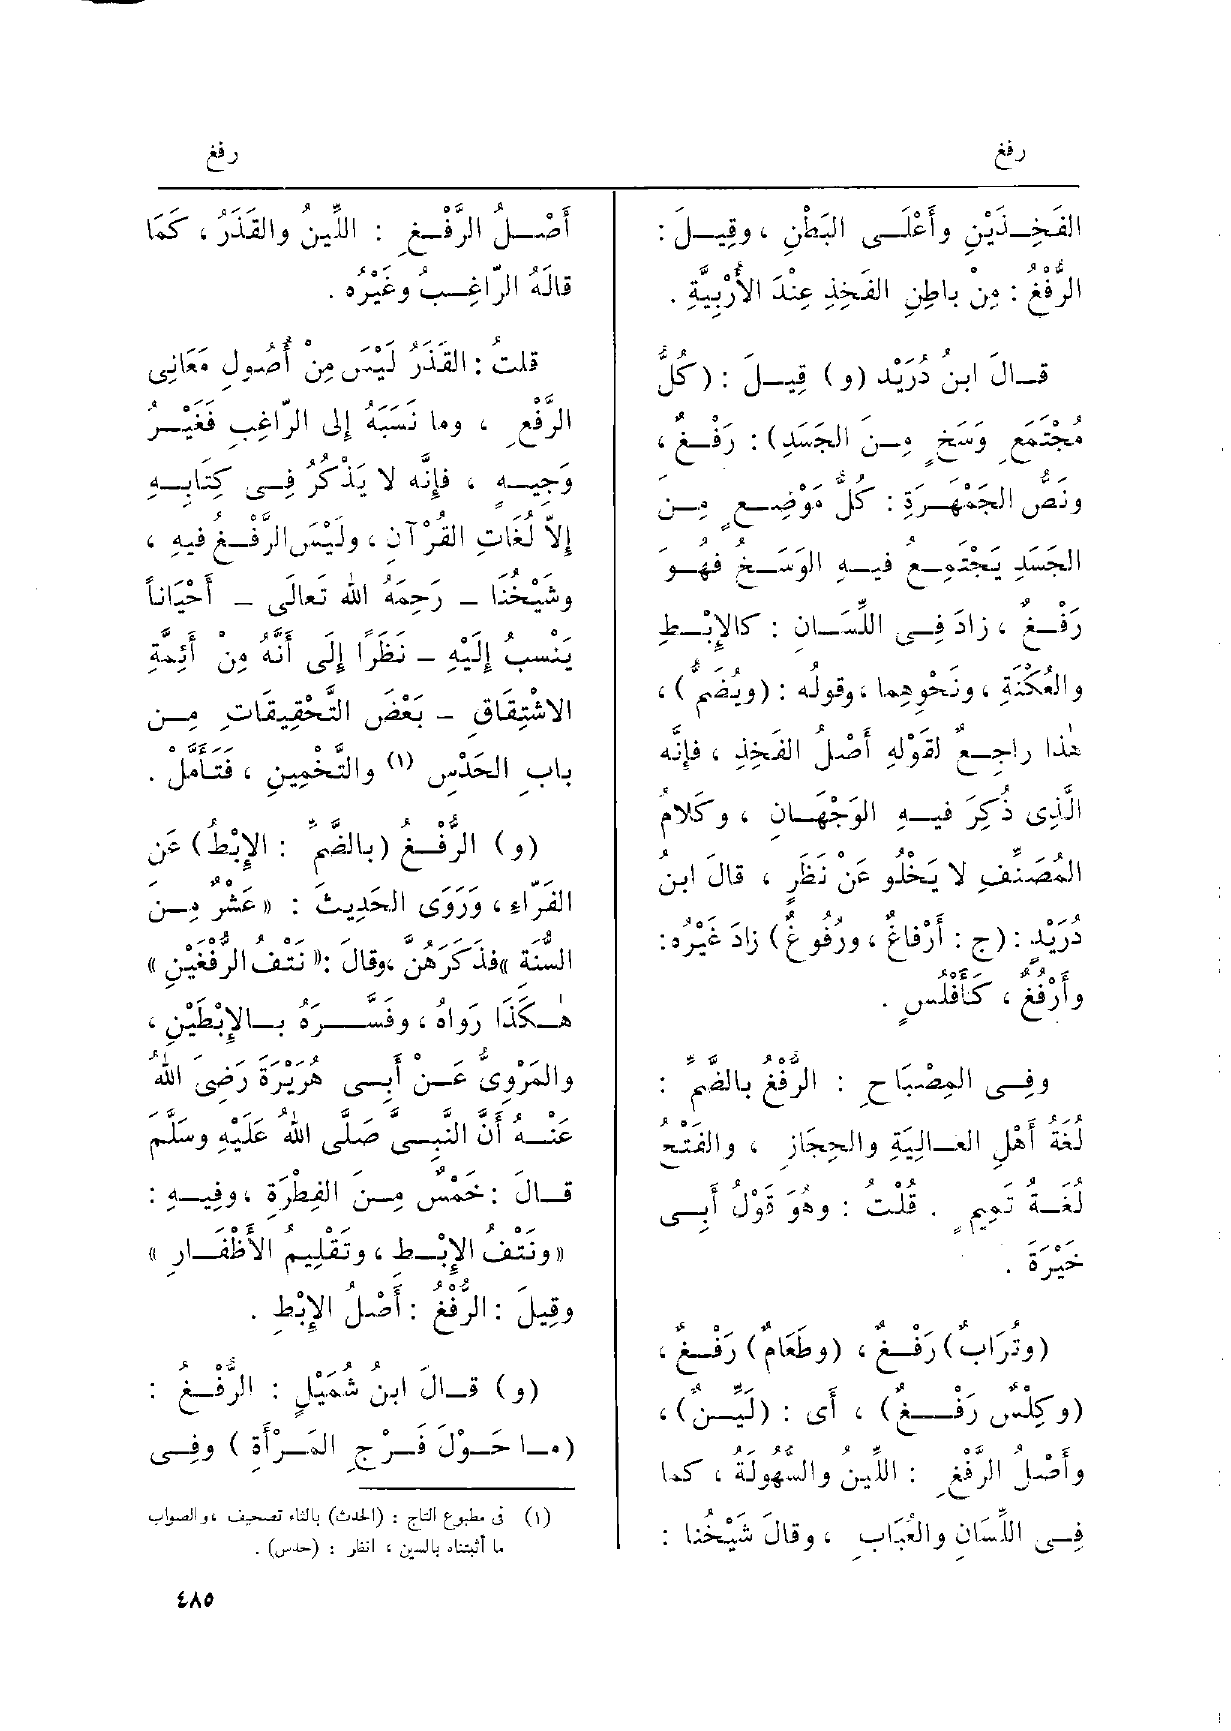 رفغ
رفغ
الفَخِـذَيْنِ وأَعْلَـى البَطْنِ ، وقِيـلَ :
الرُّفْغُ : مِنْ باطِنِ الفَخِذِ عِنْدَ الأُرْبِيَّةِ .
قـالَ ابنُ دُرَيْدٍ (و) قِيـلَ : (كُلُّ
مُجْتَمَعِ وَسَخٍ مِـنَ الجَسَدِ) : رَفْـغٌ ،
ونَصُّ الجَمْهَـرَةِ : كُلُّ مَوْضِعٍ مِـن
الجَسَدِ يَجْتَمِـعُ فيـهِ الوَسَـخُ فهُـوَ
رَفْـغٌ ، زادَ فِـى اللِّسَـانِ : كالإِبْـطِ
والعُكْنَةِ ، ونَحْوِهِما ، وقولُه : (ويُضَمُّ) ،
هٰذا راجِـعٌ لقَوْلِهِ أَصْلُ الفَخِذِ ، فإِنَّه
الَّذِى ذُكِرَ فيـهِ الوَجْهَـانِ ، وكَلامُ
المُصَنِّفِ لا يَخْلُو عَنْ نَظَرٍ ، قالَ ابنُ
دُرَيْدٍ : (ج : أَرْفاغٌ ، ورُفُوغٌ) زادَ غَيْرُه :
وأَرْفُغٌ ، كَأَفْلُسٍ .
وفِـى المِصْبَاحِ : الرُّفْغُ بالضَّمِّ :
لُغَةُ أَهْلِ العـالِيَةِ والحِجَازِ ، والفَتْحُ
لُغَـةُ تَمِيمٍ . قُلْتُ : وهُوَ قَوْلُ أَبِـى
خَيْرَةَ .
(وتُرَابٌ) رَفْـغٌ ، (وطَعَامٌ) رَفْـغٌ ،
(وكِلْسٌ رَفْـغٌ) ، أَى : (لَيِّـنٌ) ،
وأَصْلُ الرَّفْغِ : اللِّينُ والسُّهُولَةُ ، كما
فِـى اللِّسَانِ والعُبَابِ ، وقالَ شَيْخُنا :
أَصْـلُ الرَّفْـغِ : اللِّينُ والقَذَرُ ، كَمَا
قالَهُ الرّاغِـبُ وغَيْرُه .
قلتُ : القَذَرُ لَيْسَ مِنْ أُصُولِ مَعَانِى
الرَّفْغِ ، وما نَسَبَهُ إِلى الرّاغِبِ فَغَيْـرُ
وَجِيـهٍ ، فإِنَّه لا يَذْكُرُ فِـى كِتَابِـهِ
إِلاّ لُغَاتِ القُرْآنِ ، ولَيْسَ الرَّفْـغُ فيهِ ،
وشَيْخُنَا - رَحِمَهُ اللهُ تَعالَى - أَحْيَاناً
يَنْسبُ إِلَيْهِ - نَظَرًا إِلَى أَنَّهُ مِنْ أَئِمَّةِ
الاشْتِقَاقِ - بَعْضَ التَّحْقِيقَاتِ مِـن
بابِ الحَدْسِ (١) والتَّخْمِينِ ، فَتَأَمَّلْ .
(و) الرُّفْـغُ (بالضَّمِّ : الإِبْطُ) عَن
الفَرّاءِ ، ورَوَى الحَدِيثَ : « عَشْرٌ مِـن
السُّنَّةِ » فذَكَرَهُنَّ ، وقالَ : « نَتْفُ الرُّفْغَيْنِ »
هٰـكَذَا رَواهُ ، وفَسَّـرَهُ بـالإِبْطَيْنِ ،
والمَرْوِىُّ عَـنْ أَبِـى هُرَيْرَةَ رَضِىَ اللهُ
عَنْـهُ أَنَّ النَّبِـىَّ صَلَّى اللهُ عَلَيْهِ وسَلَّمَ
قـالَ : خَمْسٌ مِـنَ الفِطْرَةِ ، وفِيـهِ :
« ونَتْفُ الإِبْـطِ ، وتَقْلِيمُ الأَظْفَـارِ »
وقِيلَ : الرُّفْغُ : أَصْلُ الإِبْطِ .
(و) قـالَ ابنُ شُمَيْلٍ : الرُّفْـغُ :
(مـا حَـوْلَ فَـرْجِ المَـرْأَةِ) وفِـى
(١) فى مطبوع التاج : (الحدث) بالثاء تصحيف ، والصواب
ما أثبتناه بالسين ، انظر : (حدس) .
٤٨٥